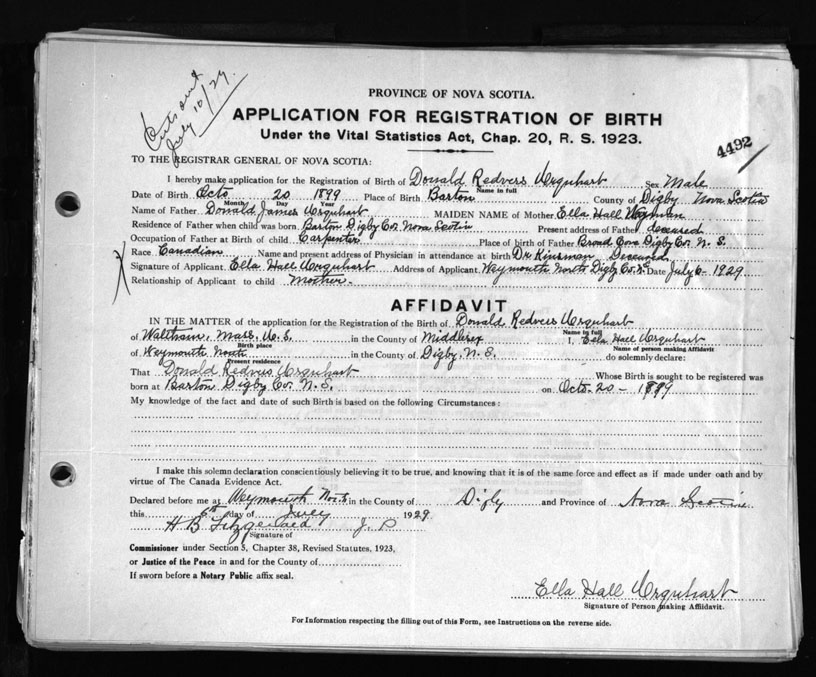 July 10/29.
PROVINCE OF NOVA SCOTIA.
APPLICATION FOR REGISTRATION OF BIRTH
Under the Vital Statistics Act, Chap. 20, R. S. 1923.
4492
TO THE REGISTRAR GENERAL OF NOVA SCOTIA:
I hereby make application for the Registration of Birth of Donald Redvers Urquhart Sex Male
Name in full
Date of Birth Octo 20 1899 Place of Birth Barton County of Digby Nova Scotia
Month Day Year
Name of Father Donald James Urquhart MAIDEN NAME of Mother Ella Hall Wyman
Residence of Father when child was born Barton Digby Co. Nova Scotia Present address of Father deceased
Occupation of Father at Birth of child Carpenter Place of birth of Father Broad Cove Digby Co. N. S.
Race Canadian Name and present address of Physician in attendance at birth Dr Kinsman Deceased
Signature of Applicant Ella Hall Urquhart Address of Applicant Weymouth North Digby Co. N.S. Date July 6 - 1929
Relationship of Applicant to child Mother -
AFFIDAVIT
IN THE MATTER of the application for the Registration of the Birth of Donald Redvers Urquhart
Name in full
of Waltham, Mass. U. S. in the County of Middlesex I, Ella Hall Urquhart
Birth place Name of person making Affidavit
of Weymouth North in the County of Digby, N. S. do solemnly declare:
Present residence
That Donald Redvers Urquhart Whose Birth is sought to be registered was
born at Barton Digby Co. N. S. on Octo. 20 - 1899
My knowledge of the fact and date of such Birth is based on the following Circumstances:
I make this solemn declaration conscientiously believing it to be true, and knowing that it is of the same force and effect as if made under oath and by
virtue of The Canada Evidence Act.
Declared before me at Weymouth North in the County of Digby and Province of Nova Scotia
this 6th day of July 1929
H B Fitzgerald J. P
Signature of
Commissioner under Section 5, Chapter 38, Revised Statutes, 1923,
or Justice of the Peace in and for the County of
If sworn before a Notary Public affix seal.
Ella Hall Urquhart
Signature of Person making Affidavit.
For Information respecting the filling out of this Form, see Instructions on the reverse side.